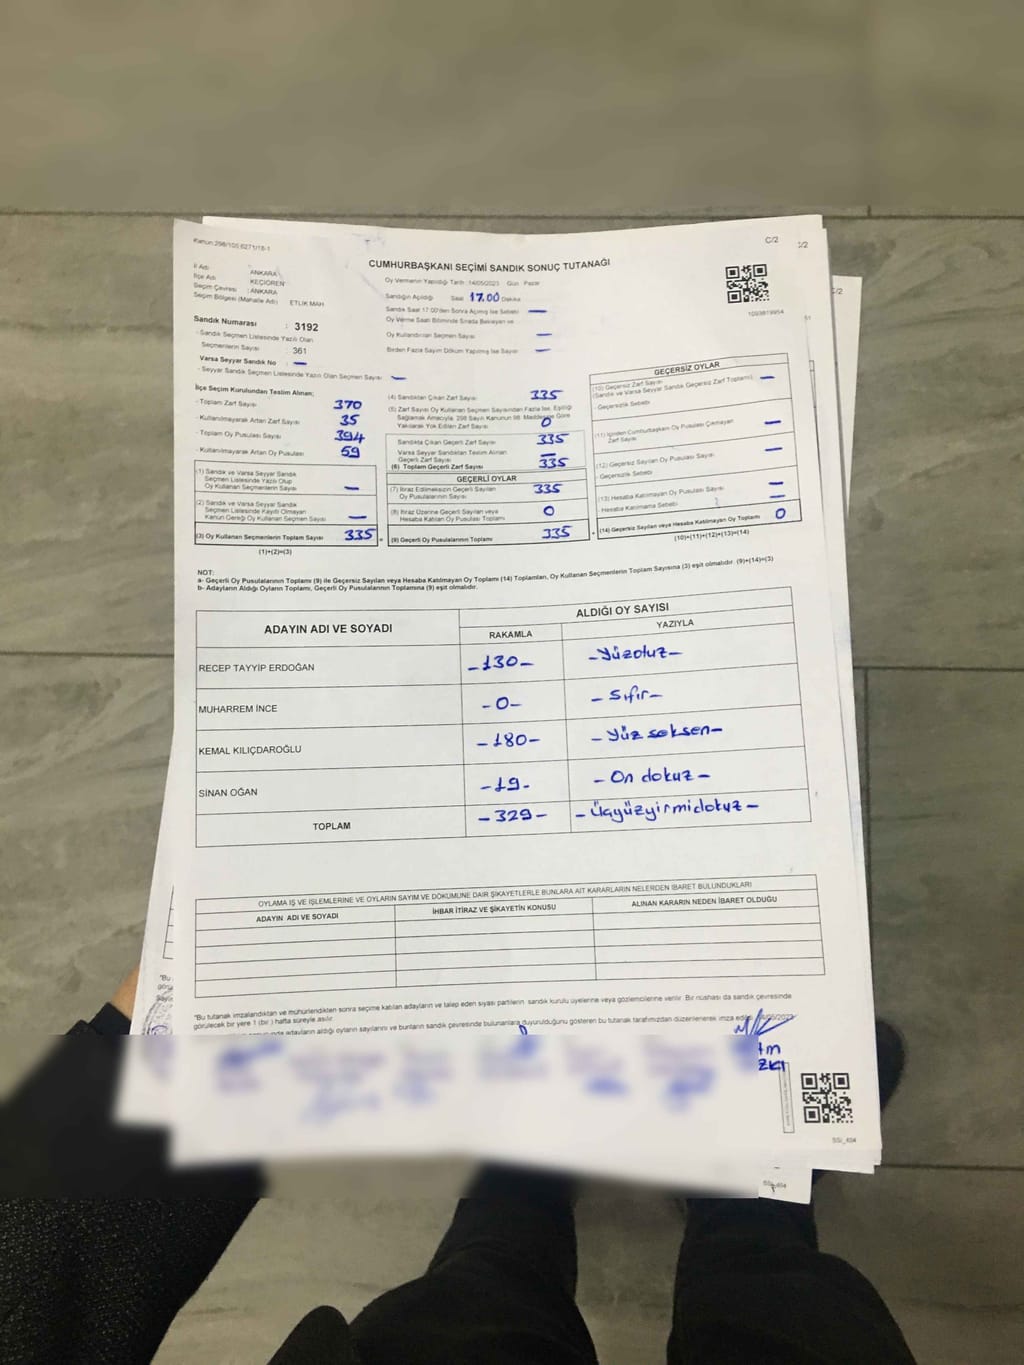 Kanun:298/105 6271/18-1
C/2
CUMHURBAŞKANI SEÇİMİ SANDIK SONUÇ TUTANAĞI
İl Adı : ANKARA
İlçe Adı : KEÇİÖREN
Seçim Çevresi : ANKARA
Seçim Bölgesi (Mahalle Adı) : ETLİK MAH
Oy Vermenin Yapıldığı Tarih :14/05/2023 Gün : Pazar
Sandığın Açıldığı Saat 17.00 Dakika
Sandık Saat 17:00'den Sonra Açılmış İse Sebebi —
Oy Verme Saati Bitiminde Sırada Bekleyen ve
Oy Kullandırılan Seçmen Sayısı —
Birden Fazla Sayım Döküm Yapılmış İse Sayısı —
1093819954
Sandık Numarası : 3192
- Sandık Seçmen Listesinde Yazılı Olan
Seçmenlerin Sayısı : 361
Varsa Seyyar Sandık No : —
- Seyyar Sandık Listesinde Yazılı Olan Seçmen Sayısı : —
İlçe Seçim Kurulundan Teslim Alınan;
- Toplam Zarf Sayısı 370
- Kullanılmayarak Artan Zarf Sayısı 35
- Toplam Oy Pusulası Sayısı 394
- Kullanılmayarak Artan Oy Pusulası 59
(1) Sandık ve Varsa Seyyar Sandık
Seçmen Listesinde Yazılı Olup
Oy Kullanan Seçmenlerin Sayısı —
(2) Sandık ve Varsa Seyyar Sandık
Seçmen Listesinde Kayıtlı Olmayan
Kanun Gereği Oy Kullanan Seçmen Sayısı —
(3) Oy Kullanan Seçmenlerin Toplam Sayısı 335
(1)+(2)=(3)
(4) Sandıktan Çıkan Zarf Sayısı 335
(5) Zarf Sayısı Oy Kullanan Seçmen Sayısından Fazla İse, Eşitliği
Sağlamak Amacıyla, 298 Sayılı Kanunun 98. Maddesine Göre
Yakılarak Yok Edilen Zarf Sayısı 0
Sandıkta Çıkan Geçerli Zarf Sayısı 335
Varsa Seyyar Sandıktan Teslim Alınan
Geçerli Zarf Sayısı —
(6) Toplam Geçerli Zarf Sayısı 335
GEÇERLİ OYLAR
(7) İtiraz Edilmeksizin Geçerli Sayılan
Oy Pusulalarının Sayısı 335
(8) İtiraz Üzerine Geçerli Sayılan veya
Hesaba Katılan Oy Pusulası Toplamı 0
= (9) Geçerli Oy Pusulalarının Toplamı 335
GEÇERSİZ OYLAR
(10) Geçersiz Zarf Sayısı
(Sandık ve Varsa Seyyar Sandık Geçersiz Zarf Toplamı) —
- Geçersizlik Sebebi
(11) İçinden Cumhurbaşkanı Oy Pusulası Çıkmayan
Zarf Sayısı —
(12) Geçersiz Sayılan Oy Pusulası Sayısı —
- Geçersizlik Sebebi
(13) Hesaba Katılmayan Oy Pusulası Sayısı —
- Hesaba Katılmama Sebebi —
+ (14) Geçersiz Sayılan veya Hesaba Katılmayan Oy Toplamı 0
(10)+(11)+(12)+(13)=(14)
NOT:
a- Geçerli Oy Pusulalarının Toplamı (9) ile Geçersiz Sayılan veya Hesaba Katılmayan Oy Toplamı (14) Toplamları, Oy Kullanan Seçmenlerin Toplam Sayısına (3) eşit olmalıdır. (9)+(14)=(3)
b- Adayların Aldığı Oyların Toplamı, Geçerli Oy Pusulalarının Toplamına (9) eşit olmalıdır.
ADAYIN ADI VE SOYADI
ALDIĞI OY SAYISI
RAKAMLA YAZIYLA
RECEP TAYYİP ERDOĞAN -130- -Yüzotuz-
MUHARREM İNCE -0- -Sıfır-
KEMAL KILIÇDAROĞLU -180- -Yüz seksen-
SİNAN OĞAN -19- -On dokuz-
TOPLAM -329- -Üçyüzyirmidokuz-
OYLAMA İŞ VE İŞLEMLERİNE VE OYLARIN SAYIM VE DÖKÜMÜNE DAİR ŞİKAYETLERLE BUNLARA AİT KARARLARIN NELERDEN İBARET BULUNDUKLARI
ADAYIN ADI VE SOYADI İHBAR İTİRAZ VE ŞİKAYETİN KONUSU ALINAN KARARIN NEDEN İBARET OLDUĞU
"Bu tutanak imzalandıktan ve mühürlendikten sonra seçime katılan adayların ve talep eden siyasi partilerin sandık kurulu üyelerine veya gözlemcilerine verilir. Bir nüshası da sandık çevresinde
görülecek bir yere 1 (bir) hafta süreyle asılır.
adayların aldığı oyların sayılarını ve bunların sandık çevresinde bulunanlara duyurulduğunu gösteren bu tutanak tarafımızdan düzenlenerek imza edildi.
SSİ_404